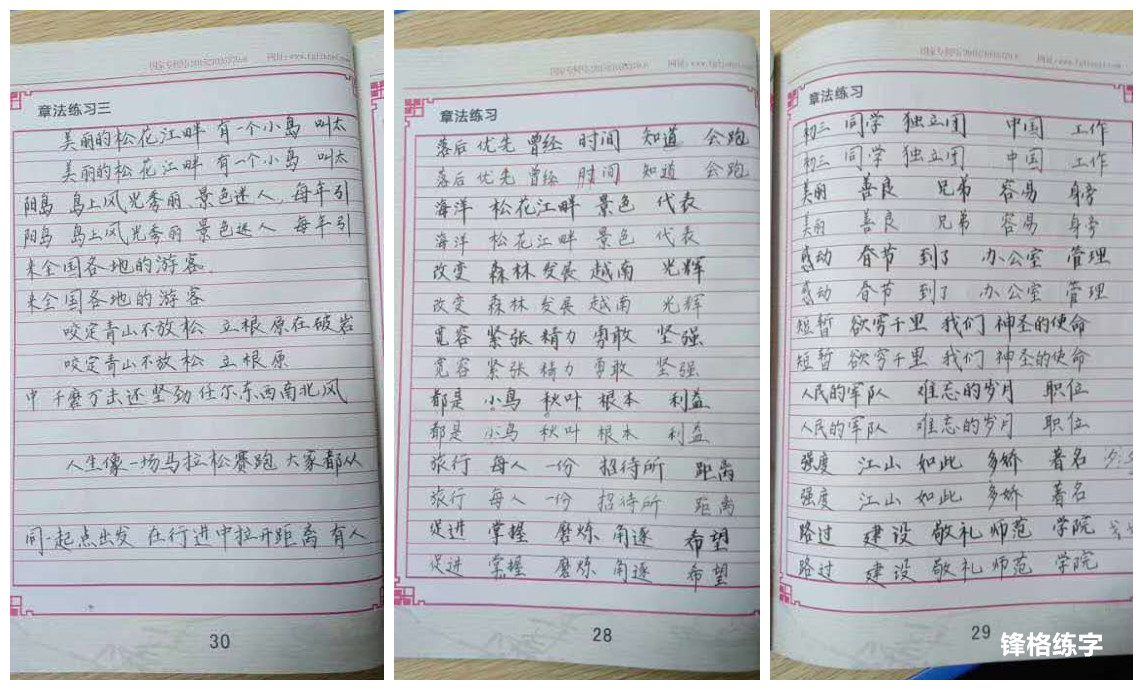 章法练习三
美丽的松花江畔 有一个小岛 叫太
美丽的松花江畔 有一个小岛 叫太
阳岛 岛上风光秀丽、景色迷人、每年引
阳岛 岛上风光秀丽 景色迷人 每年引
来全国各地的游客.
来全国各地的游客
咬定青山不放松 立根原在破岩
咬定青山不放松 立根原
中 千磨万击还坚劲 任尔东西南北风
人生像一场马拉松赛跑 大家都从
同一起点出发 在行进中拉开距离 有人
30
章法练习
落后 优先 曾经 时间 知道 会跑
落后 优先 曾经 时间 知道 会跑
海洋 松花江畔 景色 代表
海洋 松花江畔 景色 代表
改变 森林 发展 越南 光辉
改变 森林 发展 越南 光辉
宽容 紧张 精力 勇敢 坚强
宽容 紧张 精力 勇敢 坚强
都是 小鸟 秋叶 根本 利益
都是 小鸟 秋叶 根本 利益
旅行 每人 一份 招待所 距离
旅行 每人 一份 招待所 距离
促进 掌握 磨炼 角逐 希望
促进 掌握 磨炼 角逐 希望
28
章法练习
初三 同学 独立团 中国 工作
初三 同学 独立团 中国 工作
美丽 善良 兄弟 容易 身旁
美丽 善良 兄弟 容易 身旁
感动 春节 到了 办公室 管理
感动 春节 到了 办公室 管理
短暂 欲穷千里 我们 神圣的使命
短暂 欲穷千里 我们 神圣的使命
人民的军队 难忘的岁月 职位
人民的军队 难忘的岁月 职位
强度 江山 如此 多娇 著名
强度 江山 如此 多娇 著名
路过 建设 敬礼 师范 学院
路过 建设 敬礼 师范 学院
29
锋格练字